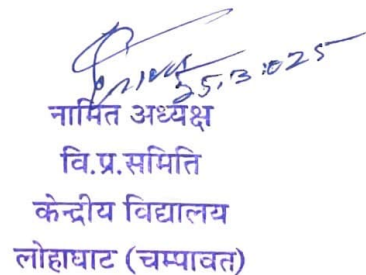 25.3.2025
नामित अध्यक्ष
वि.प्र.समिति
केन्द्रीय विद्यालय
लोहाघाट (चम्पावत)